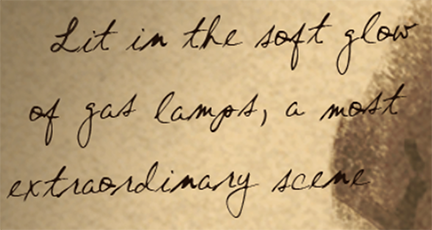 Lit in the soft glow
of gas lamps, a most
extraordinary scene